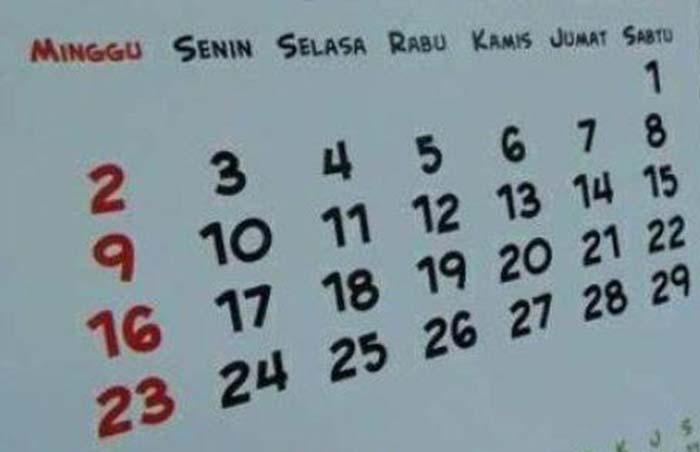 MINGGU SENIN SELASA RABU KAMIS JUMAT SABTU
1
2 3 4 5 6 7 8
9 10 11 12 13 14 15
16 17 18 19 20 21 22
23 24 25 26 27 28 29
K J S